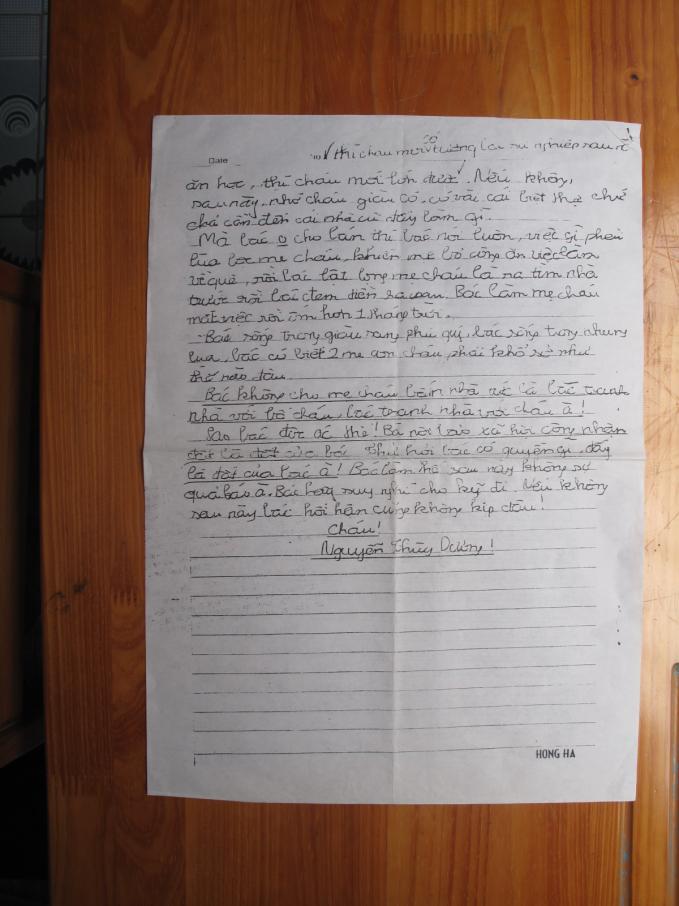 Date
thì cháu mới có tương lai sự nghiệp sau
ăn học, thì cháu mới lớn được. Nếu không,
sau này, nhỡ cháu giàu có, có vài cái biệt thự chứ
chả cần đến cái nhà cũ đấy làm gì.
Mà bác o cho bán thì bác nói luôn, việc gì phải
lừa lọc mẹ cháu, khiến mẹ bỏ công ăn việc làm
về quê, rồi bác lật lọng mẹ cháu là ra tìm nhà
trước rồi bác đem tiền ra sau. Bác làm mẹ cháu
mất việc rồi ốm hơn 1 tháng trời.
Bác sống trong giàu sang phú quý, bác sống trong nhung
lụa, bác có biết 2 mẹ con cháu phải khổ sở như
thế nào đâu
Bác không cho mẹ cháu bán nhà tức là bác tranh
nhà với bố cháu, bác tranh nhà với cháu à!
Sao bác độc ác thế! Bà nội bảo xã hội công nhận
đất là đất của bác. Thử hỏi bác có quyền gì, đấy
là đất của bác à! Bác làm thế sau này không sợ
quả báo à. Bác hãy suy nghĩ cho kỹ đi. Nếu không
sau này bác hối hận cũng không kịp đâu!
Cháu!
Nguyễn Thùy Dương!
HONG HA